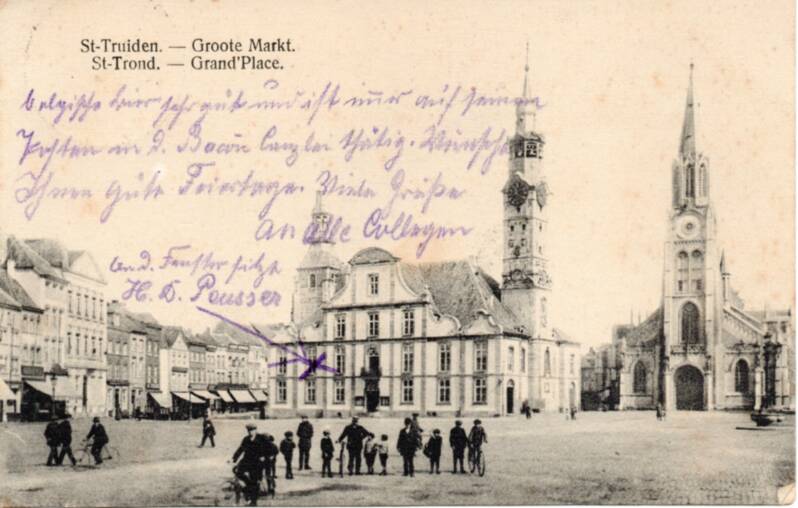 St-Truiden. — Groote Markt.
St-Trond. — Grand'Place.
belgische bier sehr gut und ist auf seinem
Posten in d. thätig. Wünsche
Ihnen gute Feiertage. Viele Grüße
an alle Collegen
an d. Fenster sitzt
H. D. Peusser